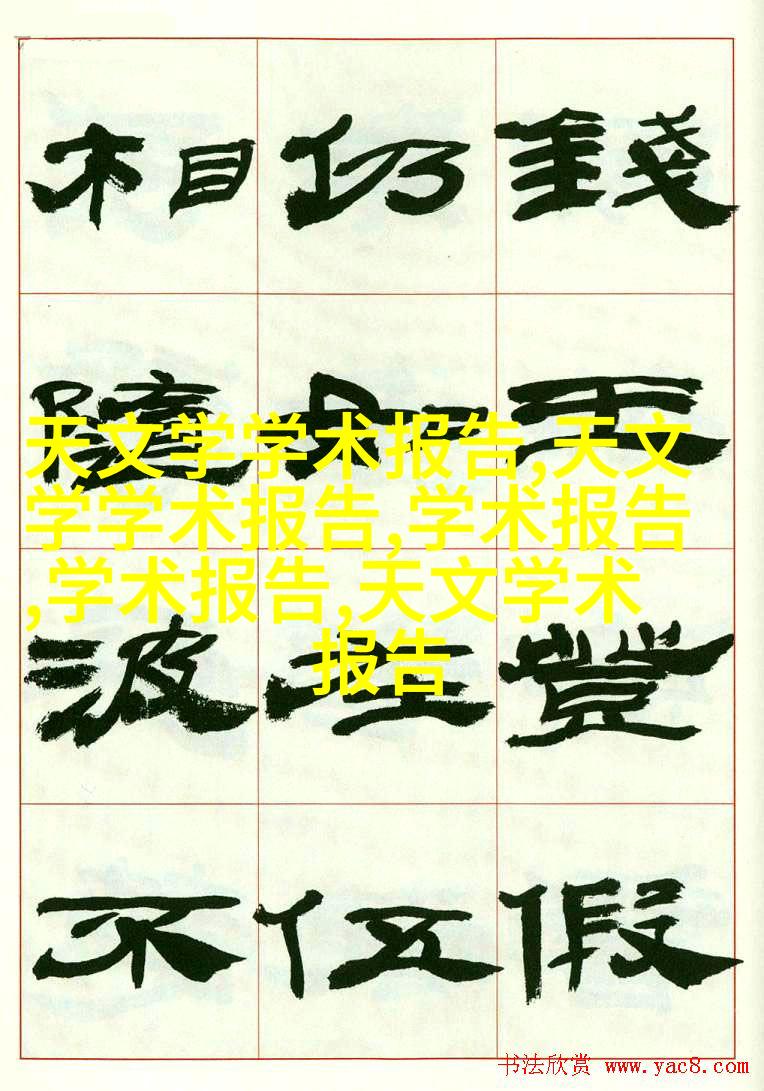 錢王豈假
仍伍
相波不
天文学学术报告,天文
学学术报告,学术报告
,学术报告,天文学术
报告
书法欣赏 www.yac8.com